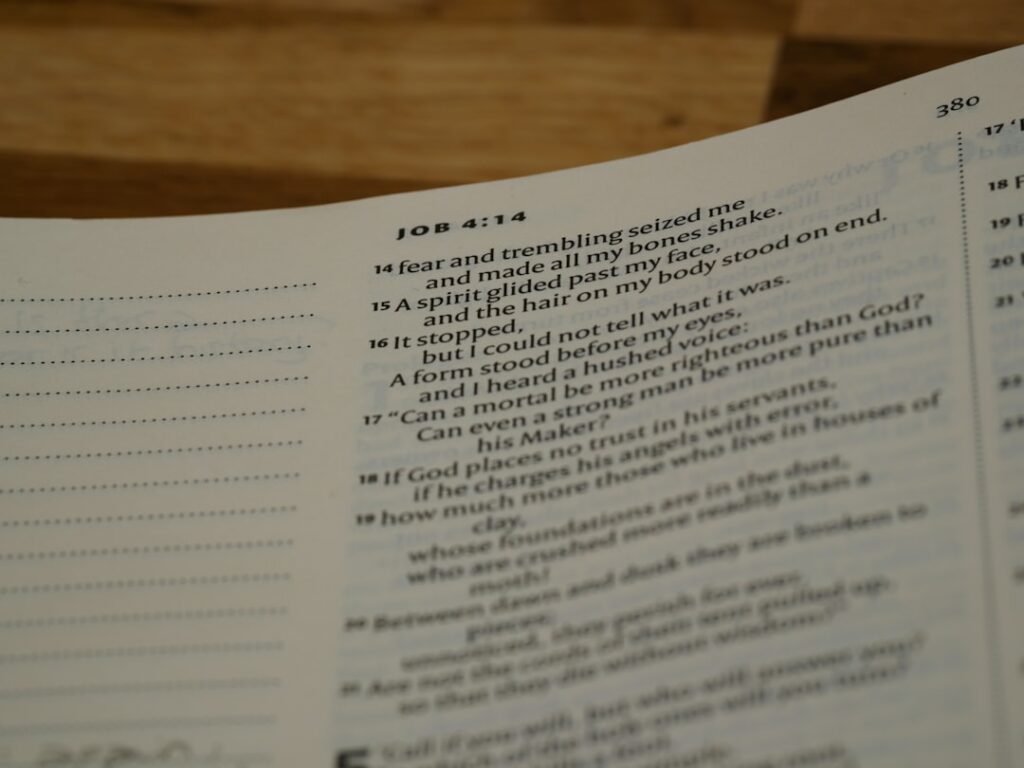 380
JOB 4:14
14 fear and trembling seized me
and made all my bones shake.
15 A spirit glided past my face,
and the hair on my body stood on end.
16 It stopped,
but I could not tell what it was.
A form stood before my eyes,
and I heard a hushed voice:
17 “Can a mortal be more righteous than God?
Can even a strong man be more pure than
his Maker?
18 If God places no trust in his servants,
if he charges his angels with error,
19 how much more those who live in houses of
clay,
whose foundations are in the dust,
who are crushed more readily than a
moth!
20 Between dawn and dusk they are broken to
pieces;
unnoticed, they perish for ever.
21 Are not the cords of their tent pulled up,
so that they die without wisdom?
5 ‘Call if you will, but who will answer you?
17
18
19
20
21